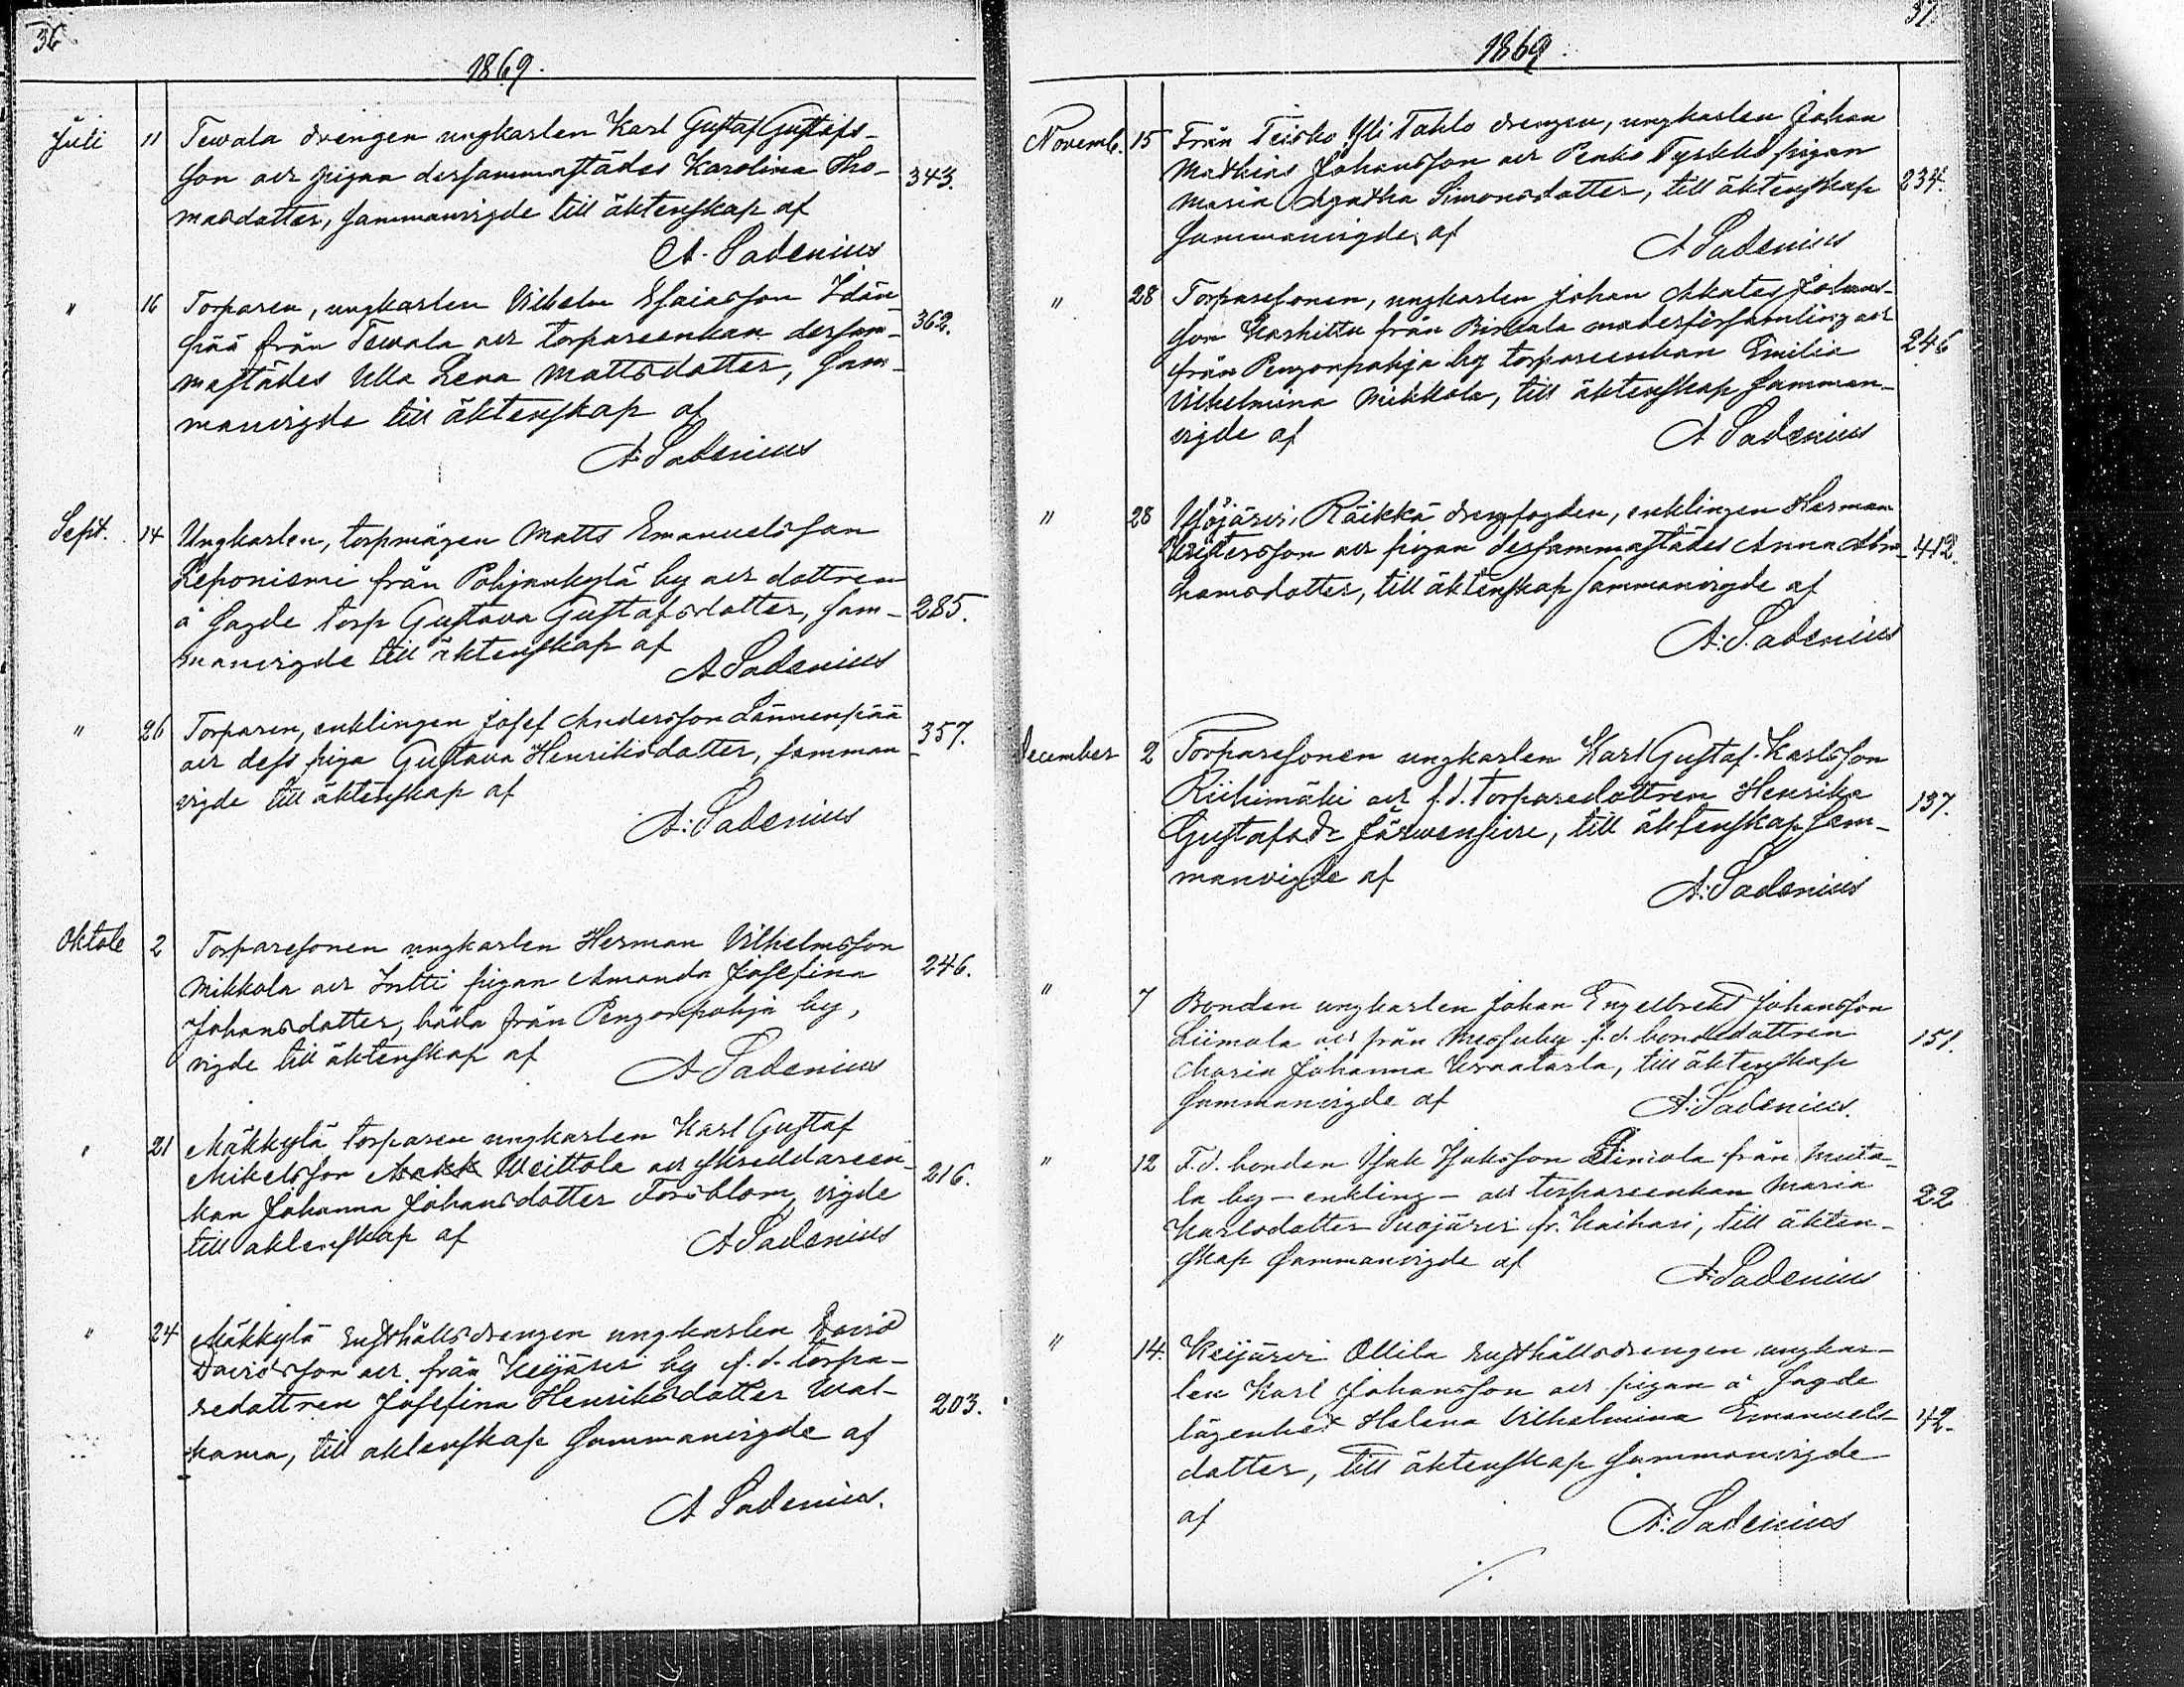 36
1869.
Juli 11 Tewala drengen ungkarlen Karl Gustaf Gustafs-
son och pigan dersammastädes Karolina Tho- 343.
masdotter, sammanvigde till äktenskap af
A. Sadenius
" 16 Torparen, ungkarlen Vilhelm Esaiasson Idän
pää från Tewala och torpareenkan dersam- 362.
mastädes Ulla Lena Mattsdotter, sam-
manvigde till äktenskap af
A. Sadenius
Sept. 14 Ungkarlen, torpmågen Matts Emanuelsson
Leponiemi från Pohjankylä by och dottren
å sagde torp Gustava Gustafsdotter, sam- 285.
manvigde till äktenskap af
A Sadenius
" 26 Torparen, enklingen Josef Andersson Lännenpää 357.
och dess piga Gustava Henriksdotter, samman
vigde till äktenskap af
A: Sadenius
Oktobe 2 Torparesonen ungkarlen Herman Vilhelmsson
Mikkola och Intti pigan Amanda Josefina 246.
Johansdotter, båda från Pengonpohja by,
vigde till äktenskap af
A Sadenius
" 21 Mäkkylä torparen ungkarlen Karl Gustaf
Mikelsson Weittola och skreddareen- 216.
kan Johanna Johansdotter Forsblom, vigde
till äktenskap af A Sadenius
" 24 Mäkkylä rusthållsdrengen ungkarlen David
Davidsson och från Keijärvi by f. d. torpa-
redottren Josefina Henriksdotter Wal- 203.
kama, till äktenskap sammanvigde af
A Sadenius.
37
1869.
Novemb. 15 Från Teisko Yli Taklo drengen, ungkarlen Johan
Mathias Johansson och Penko Tyrkkö pigan
Maria Agatha Simonsdotter, till äktenskap 234.
sammanvigde af A Sadenius
" 28 Torparesonen, ungkarlen Johan Akates Johans-
son Karhittu från Birkala moderförsamling och
från Pengonpohja by torpareenkan Emilia 246
Vilhelmina Mikkola, till äktenskap samman-
vigde af A Sadenius
" 28 Räikkä drengfogden, enklingen Herman
Kristersson och pigan dersammastädes Anna Abra- 412.
hamsdotter, till äktenskap sammanvigde af
A: Sadenius
December 2 Torparesonen ungkarlen Karl Gustaf Karlsson
Riihimäki och f. d. torparedottren Henrika 137.
Gustafsdr Järwensivu, till äktenskap sam-
manvigde af A: Sadenius
" 7 Bonden ungkarlen Johan Engelbrekt Johansson
Liimola och från by f. d. bondedottren 151.
Maria Johanna Uraatarla, till äktenskap
sammanvigde af A: Sadenius.
" 12 F. d. bonden Isak Isaksson Liimola från Muta-
la by – enkling – och torpareenkan Maria 22
Karlsdotter Suojärvi fr. Kaihari, till äkten-
skap sammanvigde af A: Sadenius
" 14. Keijärvi Ollila rusthållsdrengen ungkar-
len Karl Johansson och pigan å sagde
lägenhet Helena Vilhelmina Emanuels- 42.
dotter, till äktenskap sammanvigde
af A: Sadenius